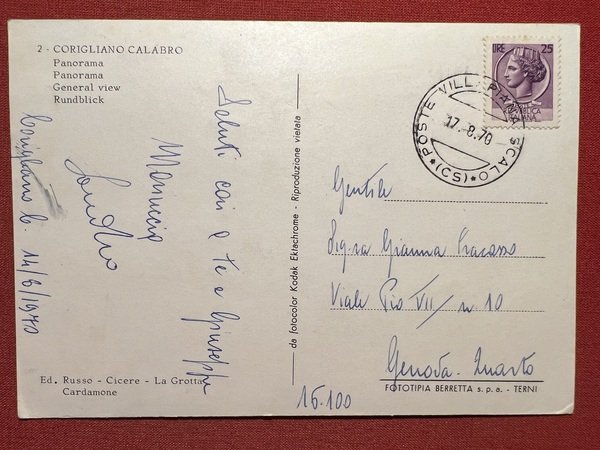 2 - CORIGLIANO CALABRO
Panorama
Panorama
General view
Rundblick
Saluti cari a te e Giuseppe
Corigliano C. 14/8/1970
Ed. Russo - Cicere - La Grotta
Cardamone
da fotocolor Kodak Ektachrome - Riproduzione vietata
LIRE 25
REPUBBLICA
ITALIANA
POSTE VILLAPIANA SCALO
(CS)
17.-8.70
Gentile
Sig.ra Gianna Fracasso
Viale Pio VII / n. 10
Genova-Quarto
FOTOTIPIA BERRETTA s.p.a. - TERNI
16.100